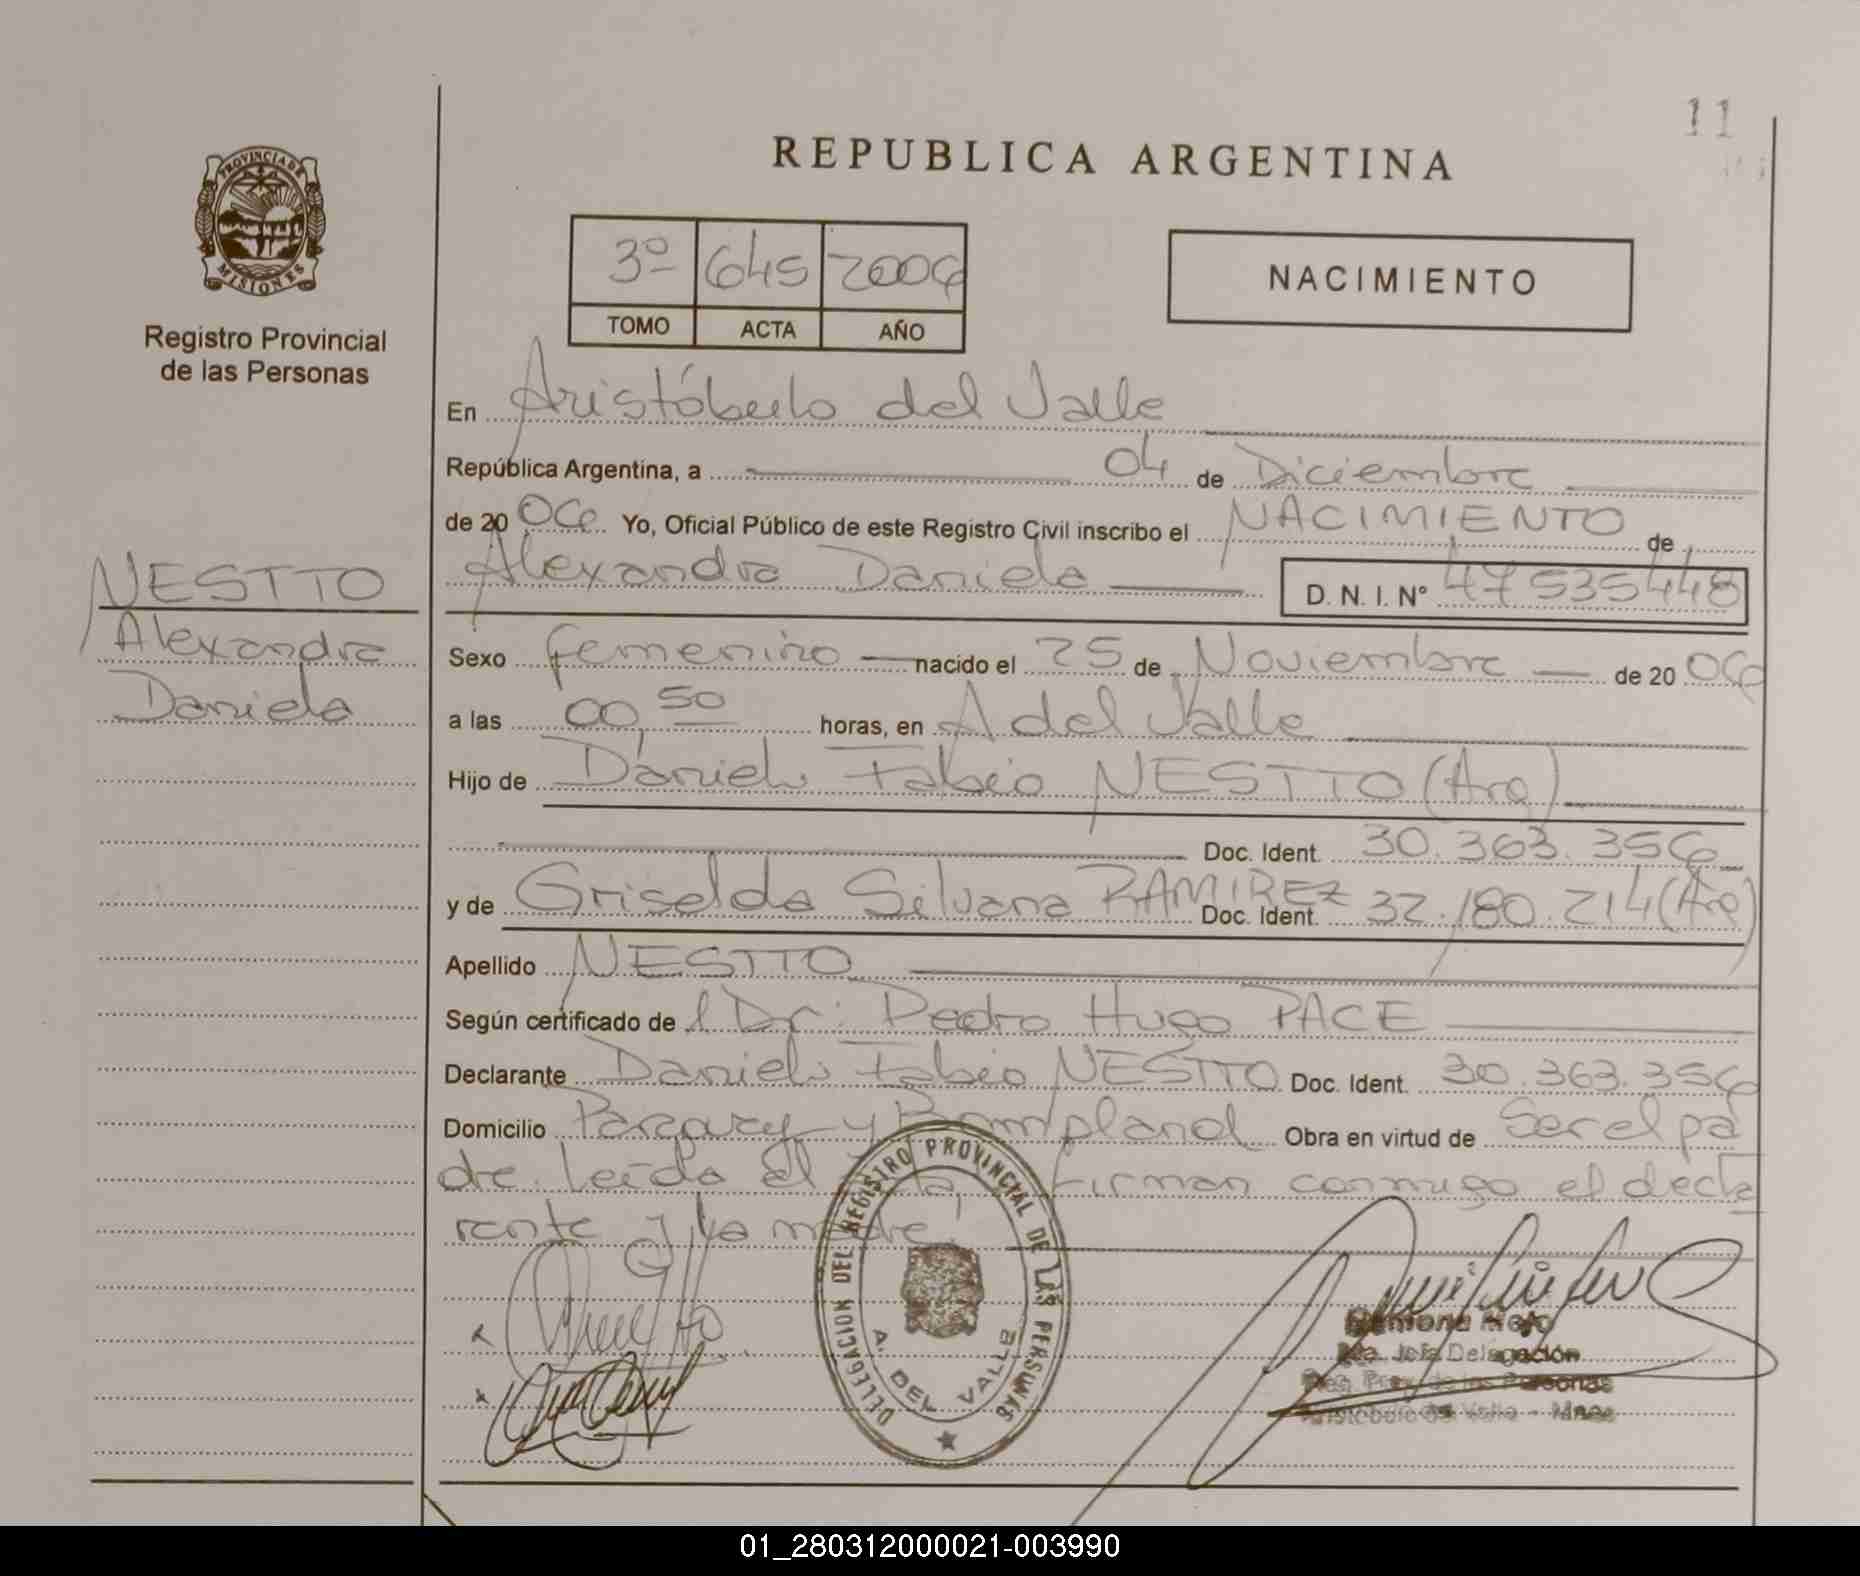 11
REPUBLICA ARGENTINA
PROVINCIA DE
MISIONES
Registro Provincial
de las Personas
3º 645 2006
TOMO ACTA AÑO
NACIMIENTO
En Aristóbulo del Valle
República Argentina, a 04 de Diciembre
de 20 06 Yo, Oficial Público de este Registro Civil inscribo el NACIMIENTO de
Alexandra Daniela D. N. I. Nº 47535448
NESTTO
Alexandra
Daniela
Sexo femenino nacido el 25 de Noviembre de 20 06
a las 00,50 horas, en A del Valle
Hijo de Daniel Fabio NESTTO (Arg)
Doc. Ident. 30.363.356
y de Griselda Silvana RAMIREZ Doc. Ident. 32.180.214 (Arg)
Apellido NESTTO
Según certificado de l Dr: Pedro Hugo PACE
Declarante Daniel Fabio NESTTO Doc. Ident. 30.363.356
Domicilio y Bompland Obra en virtud de Ser el pa
dre. Leída el firman conmigo el decla
rante y la madre.
DELEGACION DEL REGISTRO PROVINCIAL DE LAS PERSONAS
A. DEL VALLE
Ramona Mojo
Jefa Delegación
Reg. Prov. de las Personas
Aristobulo del Valle - Mnes
01_280312000021-003990